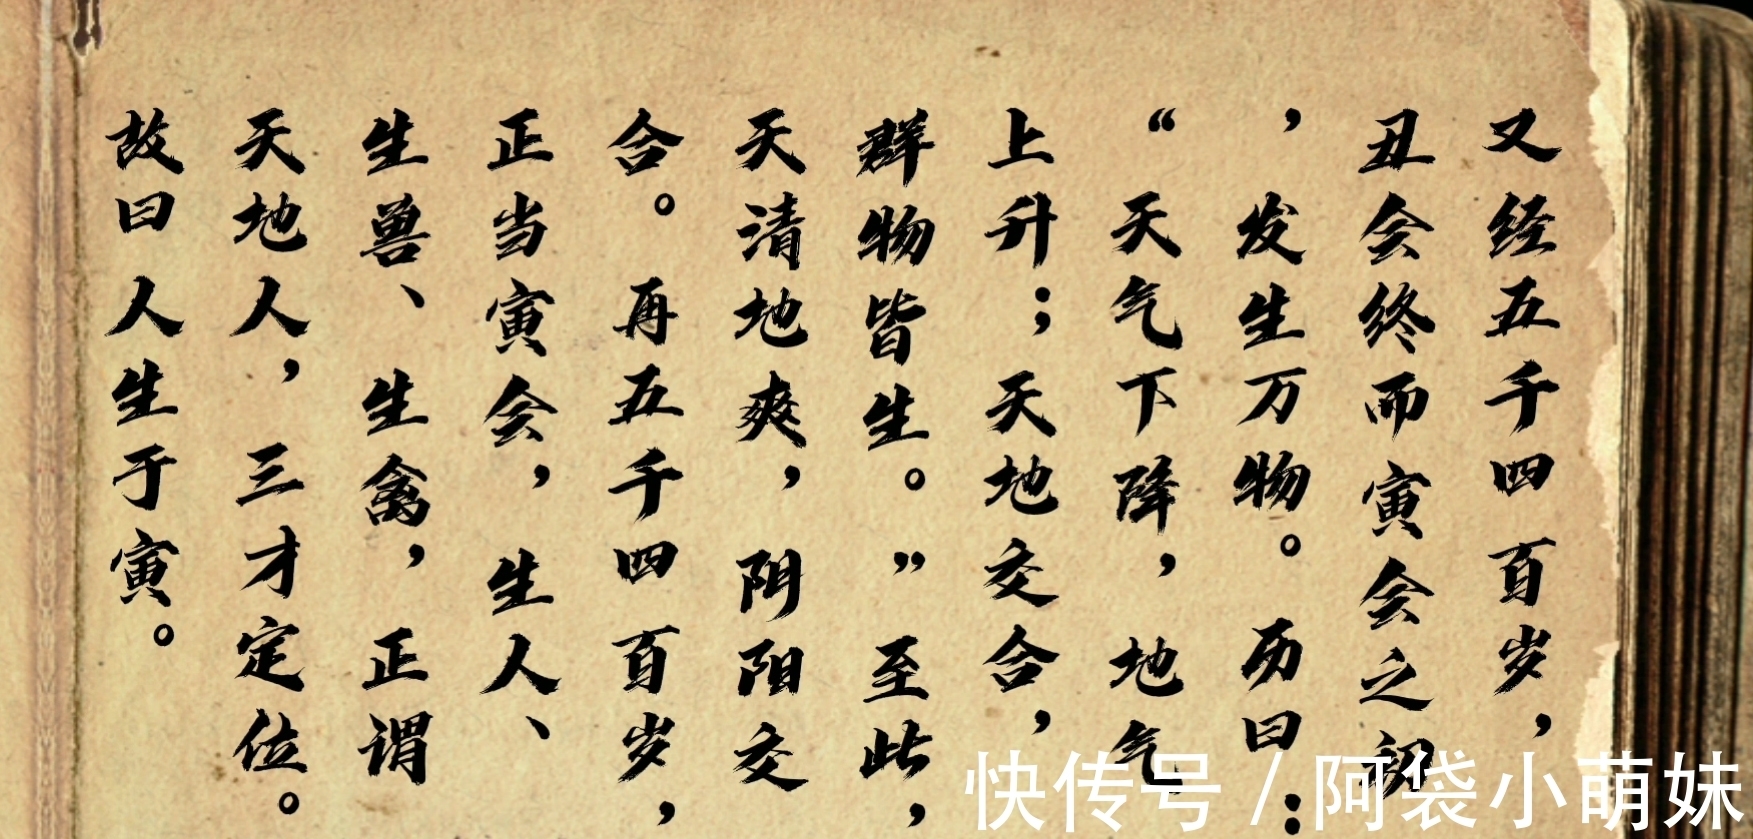 又经五千四百岁，
丑会终而寅会之初
，发生万物。历曰：
“天气下降，地气
上升；天地交合，
群物皆生。”至此，
天清地爽，阴阳交
合。再五千四百岁，
正当寅会，生人、
生兽、生禽，正谓
天地人，三才定位。
故曰人生于寅。
快传号 / 阿袋小萌妹